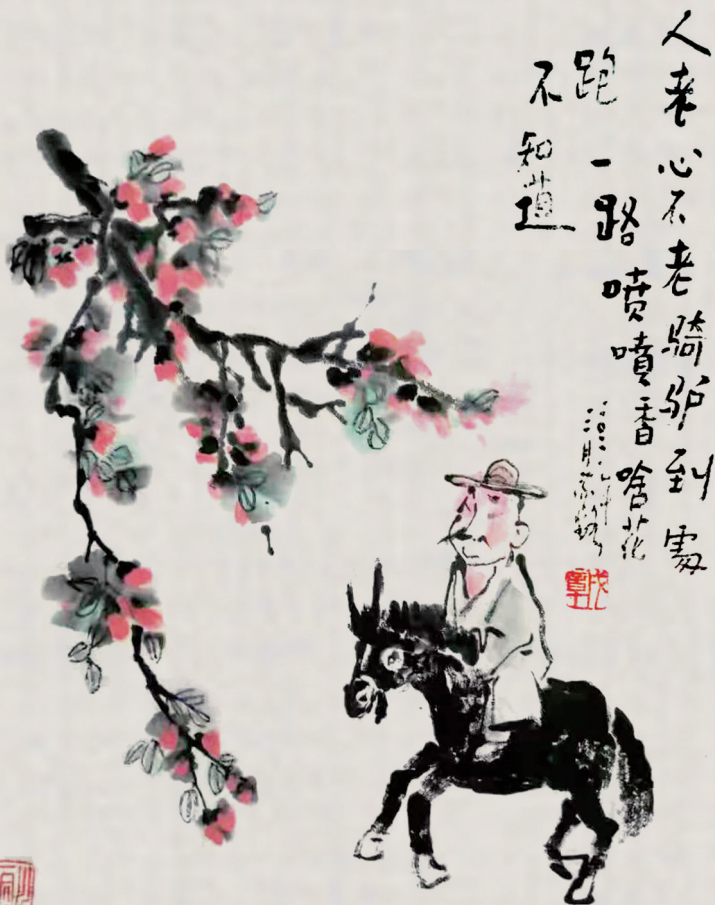 人老心不老骑驴到处
跑一路喷喷香啥花
不知道